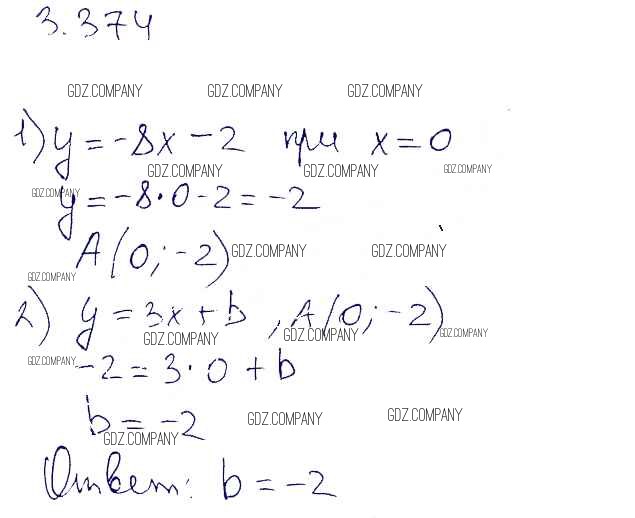 3.374
GDZ.COMPANY GDZ.COMPANY GDZ.COMPANY
1) y = -8x - 2 при x = 0
GDZ.COMPANY GDZ.COMPANY GDZ.COMPANY
GDZ.COMPANY
y = -8·0 - 2 = -2
A(0; -2)
GDZ.COMPANY GDZ.COMPANY
GDZ.COMPANY
2) y = 3x + b , A(0; -2)
GDZ.COMPANY GDZ.COMPANY GDZ.COMPANY
GDZ.COMPANY
-2 = 3·0 + b
b = -2
GDZ.COMPANY GDZ.COMPANY
GDZ.COMPANY
Ответ: b = -2